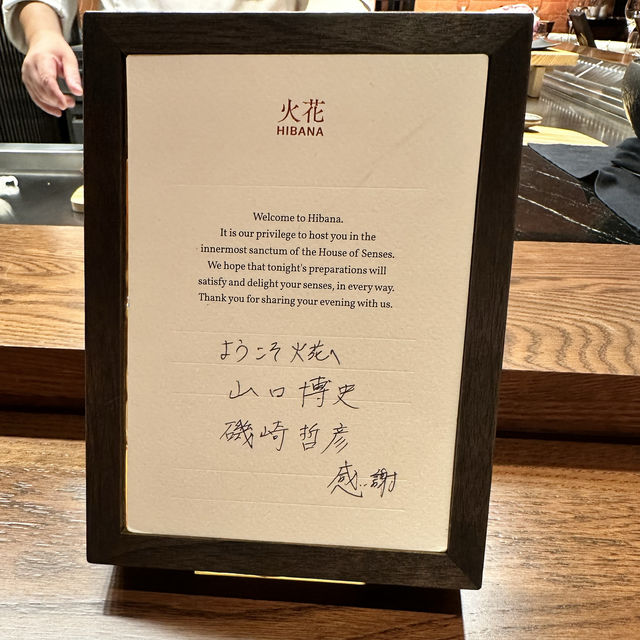 火花
HIBANA
Welcome to Hibana.
It is our privilege to host you in the
innermost sanctum of the House of Senses.
We hope that tonight's preparations will
satisfy and delight your senses, in every way.
Thank you for sharing your evening with us.
ようこそ 火花へ
山口 博史
磯崎 哲彦
感謝